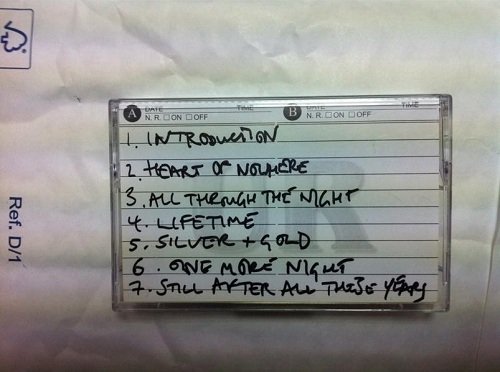 A DATE TIME B DATE TIME
N. R. □ ON □ OFF N. R. □ ON □ OFF
1. INTRODUCTION
2. HEART OF NOWHERE
3. ALL THROUGH THE NIGHT
4. LIFETIME
5. SILVER + GOLD
6. ONE MORE NIGHT
7. STILL AFTER ALL THESE YEARS
Ref. D/1